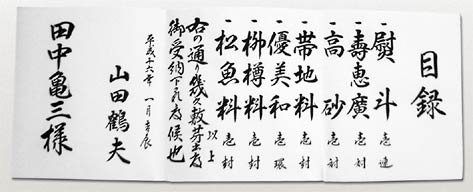 目録
一 熨斗 壱連
一 壽恵廣 壱封
一 高砂 壱封
一 帯地料 壱封
一 優美和 壱環
一 柳樽料 壱封
一 松魚料 壱封
以上
右の通り幾久敷芽出度
御受納下され度候也
平成十六年 一月吉辰
山田鶴夫
田中亀三様